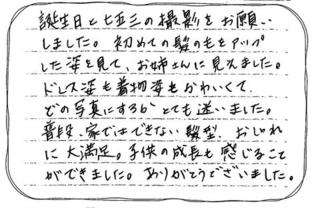 誕生日と七五三の撮影をお願い
しました。初めての髪の毛をアップ
した姿を見て、お姉さんに見えました。
ドレス姿も着物姿もかわいくて、
どの写真にするかとても迷いました。
普段、家ではできない髪型、おしゃれ
に大満足。子供の成長も感じること
ができました。ありがとうございました。